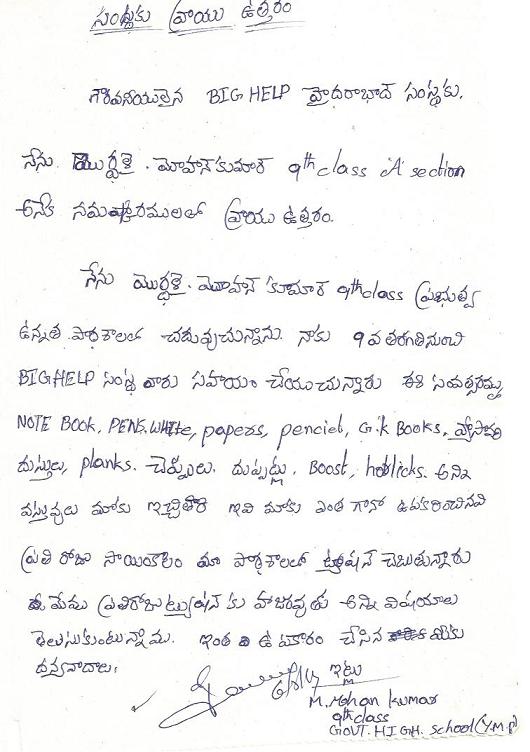 సంస్థకు వ్రాయు ఉత్తరం
గౌరవనీయులైన BIG HELP హైదరాబాద్ సంస్థకు.
నేను మొర్థలై. మోహన్ కుమార్ 9th class 'A' section
అనేక నమష్కారములతో వ్రాయు ఉత్తరం.
నేను మొర్థలై. మోహన్ కుమార్ 9th class ప్రభుత్వ
ఉన్నత పాఠశాలలో చదువుచున్నాను. నాకు 9వ తరగతినుంచి
BIG HELP సంస్థ వారు సహాయం చేయుచున్నారు ఈ సంవత్సరమ్ము
NOTE BOOK, PENS, WHITE, papers, penciel, G.k BOOKS,
దుస్తులు, planks. చెప్పులు. దుప్పట్లు, Boost, horlicks. అన్ని
వస్తువులు మాకు ఇచ్చితిరి ఇవి మాకు ఎంత గానో ఉపకరించినవి
ప్రతి రోజు సాయింకాలం మా పాఠశాలలో ట్యూషన్ చెబుతున్నారు
మేము ప్రతిరోజు ట్యుషన్ కు హాజరవుతు అన్ని విషయాలు
తెలుసుకుంటున్నాము. ఇంత ఉపకారం చేసిన మీకు
దన్యవాదాలు.
ఇట్లు
M. Mohan kumar
9th class
GOVT. HIGH. School (Y.M.P)